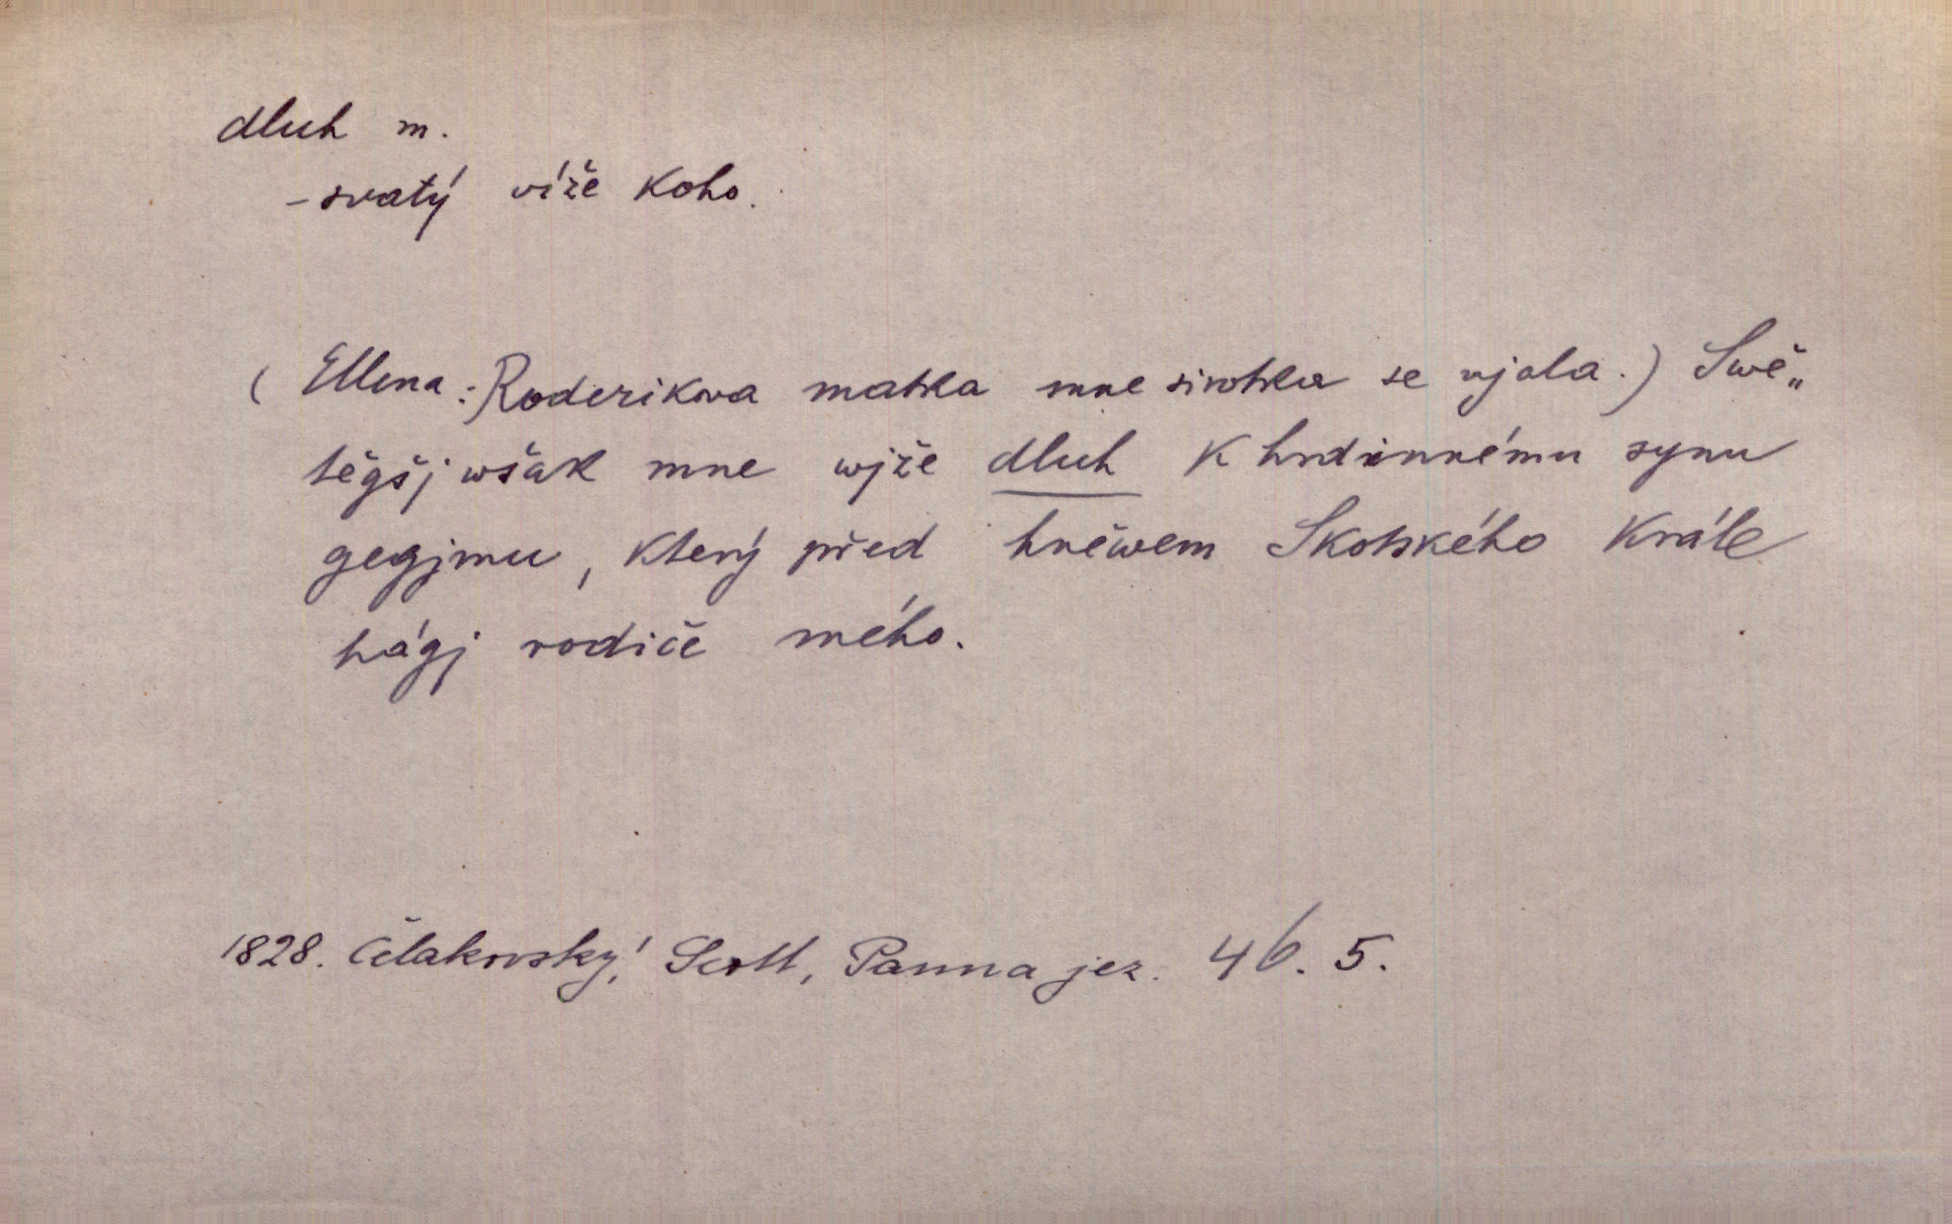 dluh m.
- svatý víže koho.
( Ellena: Roderikova matka mne sirotka se ujala.) Swě„
těgšj wšak mne wjže dluh k hrdinnému synu
gegjmu, který před hněwem Skotského krále
hágj rodiče mého.
1828. Čelakovský, Scott, Panna jez. 46. 5.